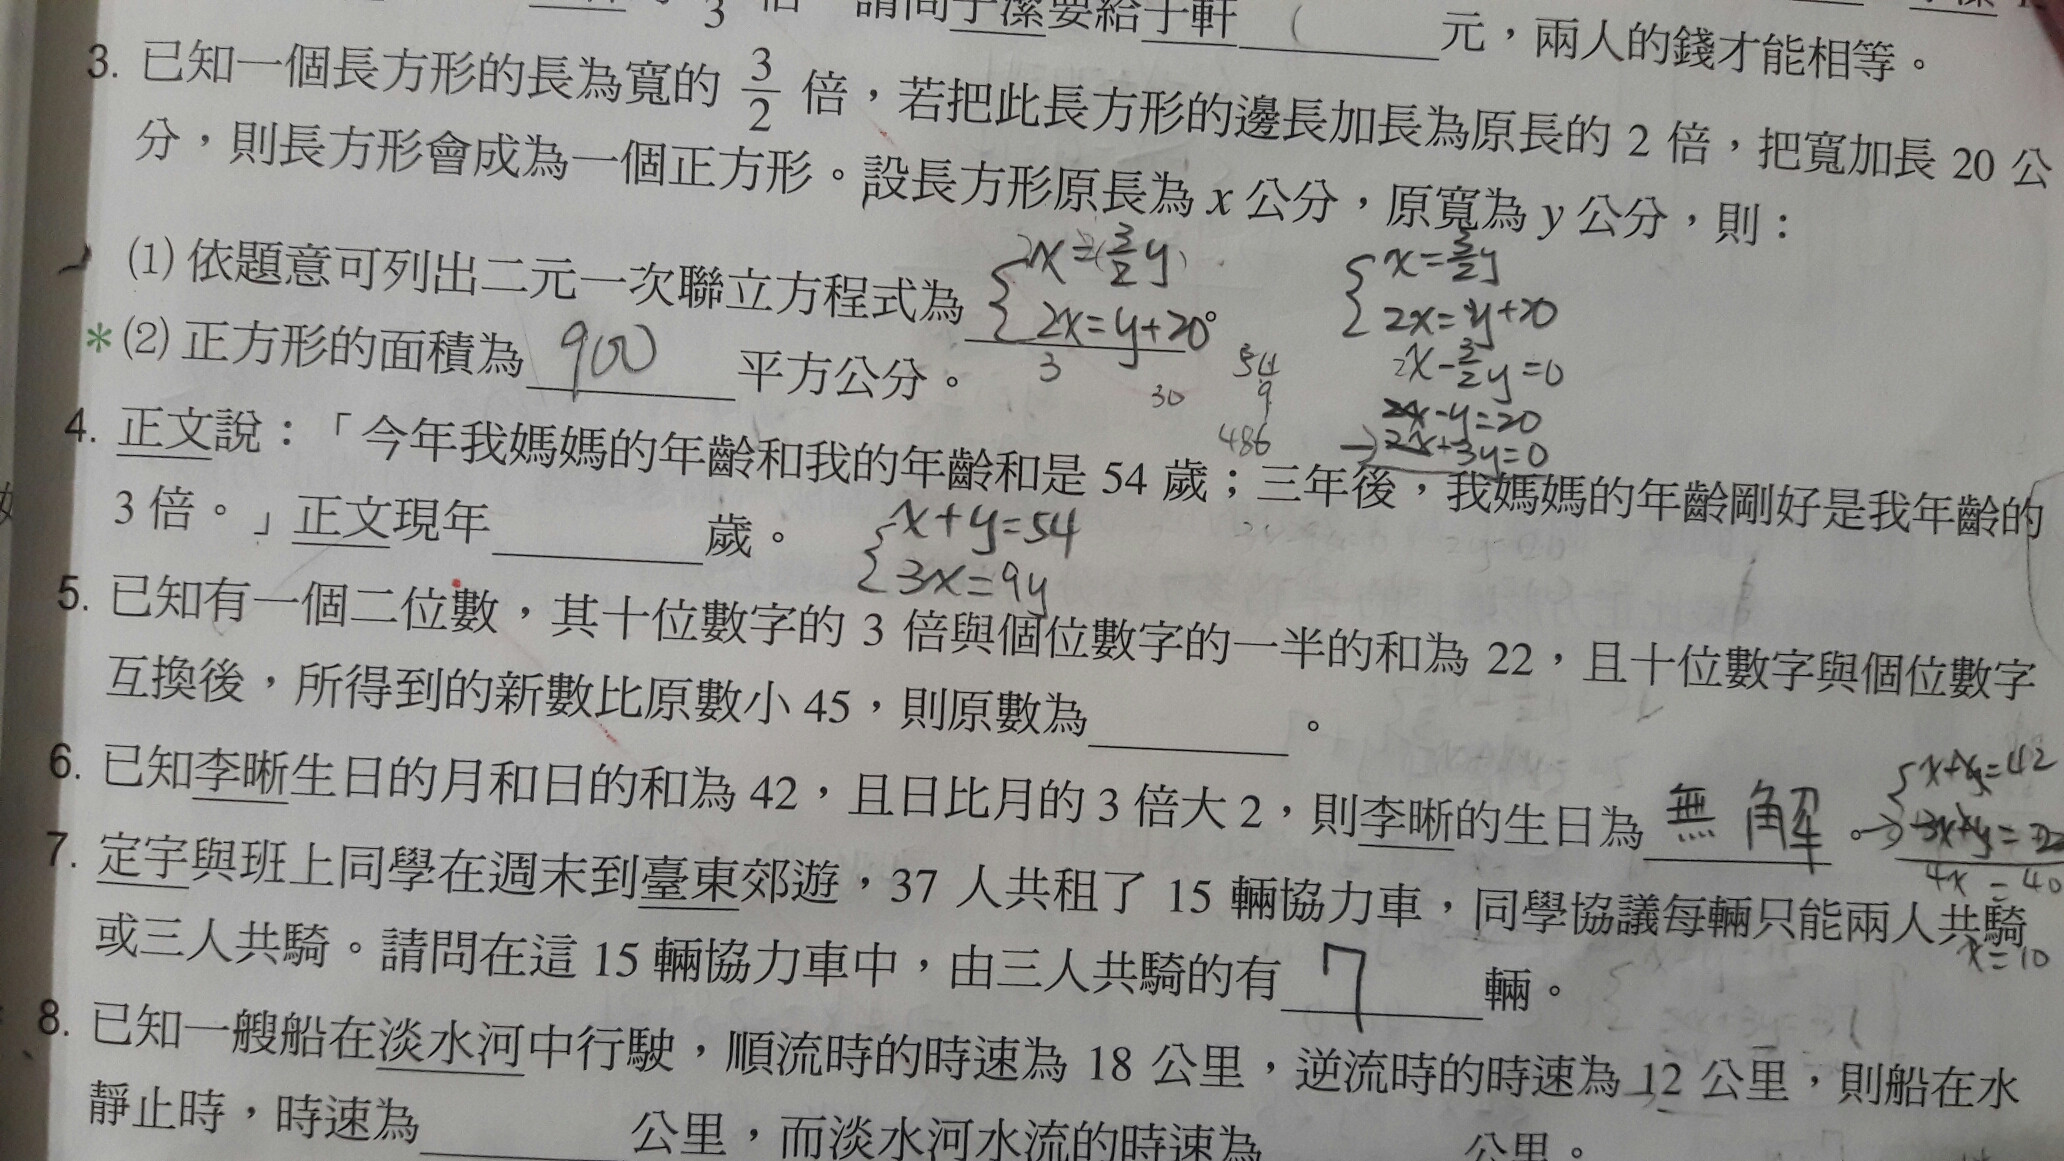 3 倍 請問于潔要給于軒 元，兩人的錢才能相等。
3. 已知一個長方形的長為寬的 3/2 倍，若把此長方形的邊長加長為原長的 2 倍，把寬加長 20 公
分，則長方形會成為一個正方形。設長方形原長為 x 公分，原寬為 y 公分，則：
(1) 依題意可列出二元一次聯立方程式為
x = 3/2 y
2x = y + 20。
x = 3/2 y
2x = y + 20
x - 3/2 y = 0
2x - y = 20
→ 2x + 3y = 0
*(2) 正方形的面積為 900 平方公分。
3
30
54
9
486
4. 正文說：「今年我媽媽的年齡和我的年齡和是 54 歲；三年後，我媽媽的年齡剛好是我年齡的
3 倍。」正文現年 歲。
x + y = 54
3x = 9y
5. 已知有一個二位數，其十位數字的 3 倍與個位數字的一半的和為 22，且十位數字與個位數字
互換後，所得到的新數比原數小 45，則原數為 。
6. 已知李晰生日的月和日的和為 42，且日比月的 3 倍大 2，則李晰的生日為 無解 。
x + y = 42
4x = 40
x = 10
7. 定宇與班上同學在週末到臺東郊遊，37 人共租了 15 輛協力車，同學協議每輛只能兩人共騎
或三人共騎。請問在這 15 輛協力車中，由三人共騎的有 7 輛。
8. 已知一艘船在淡水河中行駛，順流時的時速為 18 公里，逆流時的時速為 12 公里，則船在水
靜止時，時速為 公里，而淡水河水流的時速為 公里。